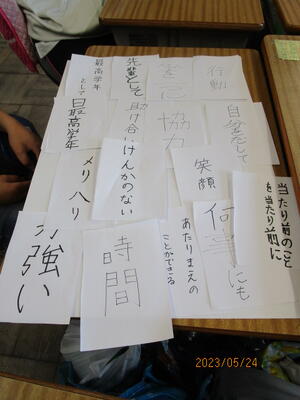 最高学年
として
先輩として
行動
日最高学年
助け合い
協力
自分として
メリハリ
けんかのない
笑顔
何事にも
当たり前のこと
を当たり前に
強い
時間
あたりまえの
ことができる
2023/05/24